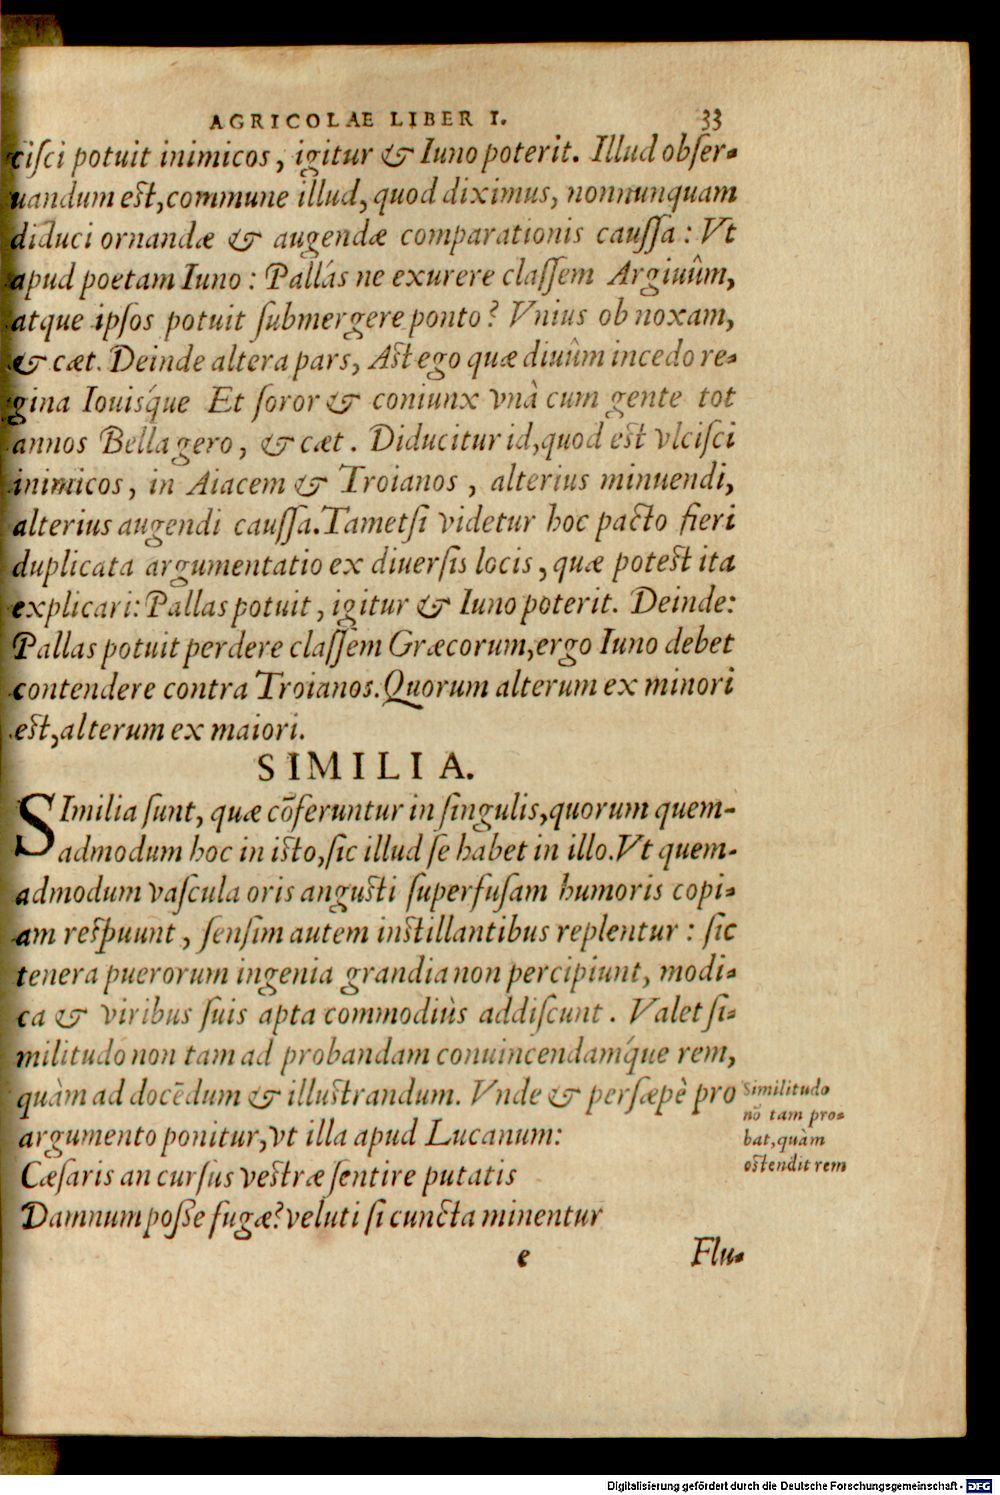 AGRICOLAE LIBER I. 33
ciſci potuit inimicos, igitur & Iuno poterit. Illud obſer-
uandum est, commune illud, quod diximus, nonnunquam
diduci ornandæ & augendæ comparationis cauſſa: Vt
apud poetam Iuno: Pallás ne exurere claſſem Argiuûm,
atque ipſos potuit ſubmergere ponto? Vnius ob noxam,
& cæt. Deinde altera pars, Ast ego quæ diuûm incedo re-
gina Iouisq́ue Et ſoror & coniunx vnà cum gente tot
annos Bella gero, & cæt. Diducitur id, quod est vlciſci
inimicos, in Aiacem & Troianos, alterius minuendi,
alterius augendi cauſſa. Tametſi videtur hoc pacto fieri
duplicata argumentatio ex diuerſis locis, quæ potest ita
explicari: Pallas potuit, igitur & Iuno poterit. Deinde:
Pallas potuit perdere claſſem Græcorum, ergo Iuno debet
contendere contra Troianos. Quorum alterum ex minori
est, alterum ex maiori.
SIMILIA.
SImilia ſunt, quæ cōferuntur in ſingulis, quorum quem-
admodum hoc in isto, ſic illud ſe habet in illo. Vt quem-
admodum vaſcula oris angusti ſuperfuſam humoris copi-
am respuunt, ſenſim autem instillantibus replentur: ſic
tenera puerorum ingenia grandia non percipiunt, modi-
ca & viribus ſuis apta commodiùs addiſcunt. Valet ſi-
militudo non tam ad probandam conuincendamq́ue rem,
quàm ad docēdum & illustrandum. Vnde & perſæpè pro
argumento ponitur, vt illa apud Lucanum:
Cæſaris an curſus vestræ ſentire putatis
Damnum poſſe fugæ? veluti ſi cuncta minentur
e Flu-
Similitudo
nō tam pro-
bat, quàm
ostendit rem
Digitalisierung gefördert durch die Deutsche Forschungsgemeinschaft - DFG